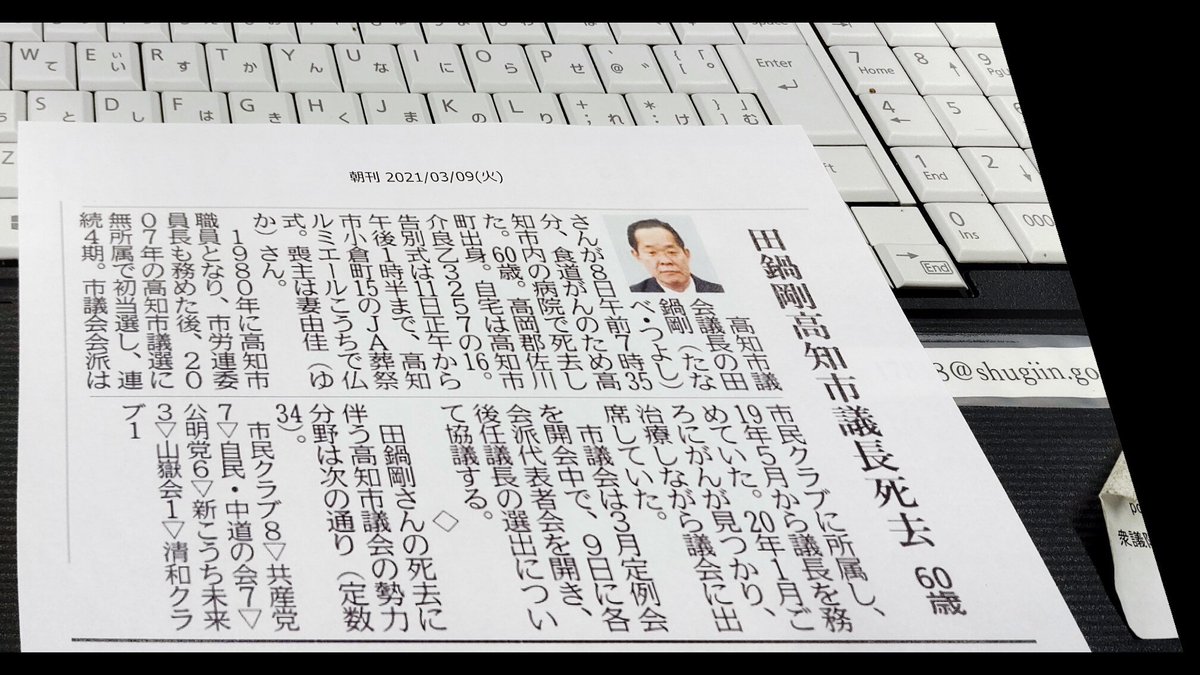 W て
E ぃ い
R す
T か
Y ん
U な
I に
O ら
P せ
@ ゛
[ 「 ゜
Enter
7 Home
8
9 PgU
S と
D し
F は
G き
H く
J ま
K の
L り
+ ; れ
* : け
} ] 」 む
4
5
6
Z
1 End
2
0 Ins
000
End
朝刊 2021/03/09(火)
田鍋剛高知市議長死去 60歳
高知市議
会議長の田
鍋剛(たな
べ・つよし)
さんが8日午前7時35
分、食道がんのため高
知市内の病院で死去し
た。60歳。高岡郡佐川
町出身。自宅は高知市
介良乙3257の16。
告別式は11日正午から
午後1時半まで、高知
市小倉町15のJA葬祭
ルミエールこうちで仏
式。喪主は妻由佳(ゆ
か)さん。
1980年に高知市
職員となり、市労連委
員長も務めた後、20
07年の高知市議選に
無所属で初当選し、連
続4期。市議会会派は
市民クラブに所属し、
19年5月から議長を務
めていた。20年1月ご
ろにがんが見つかり、
治療しながら議会に出
席していた。
市議会は3月定例会
を開会中で、9日に各
会派代表者会を開き、
後任議長の選出につい
て協議する。
◇
田鍋剛さんの死去に
伴う高知市議会の勢力
分野は次の通り(定数
34)。
市民クラブ8▽共産党
7▽自民・中道の会7▽
公明党6▽新こうち未来
3▽山嶽会1▽清和クラ
ブ1
@shugiin.go
衆議